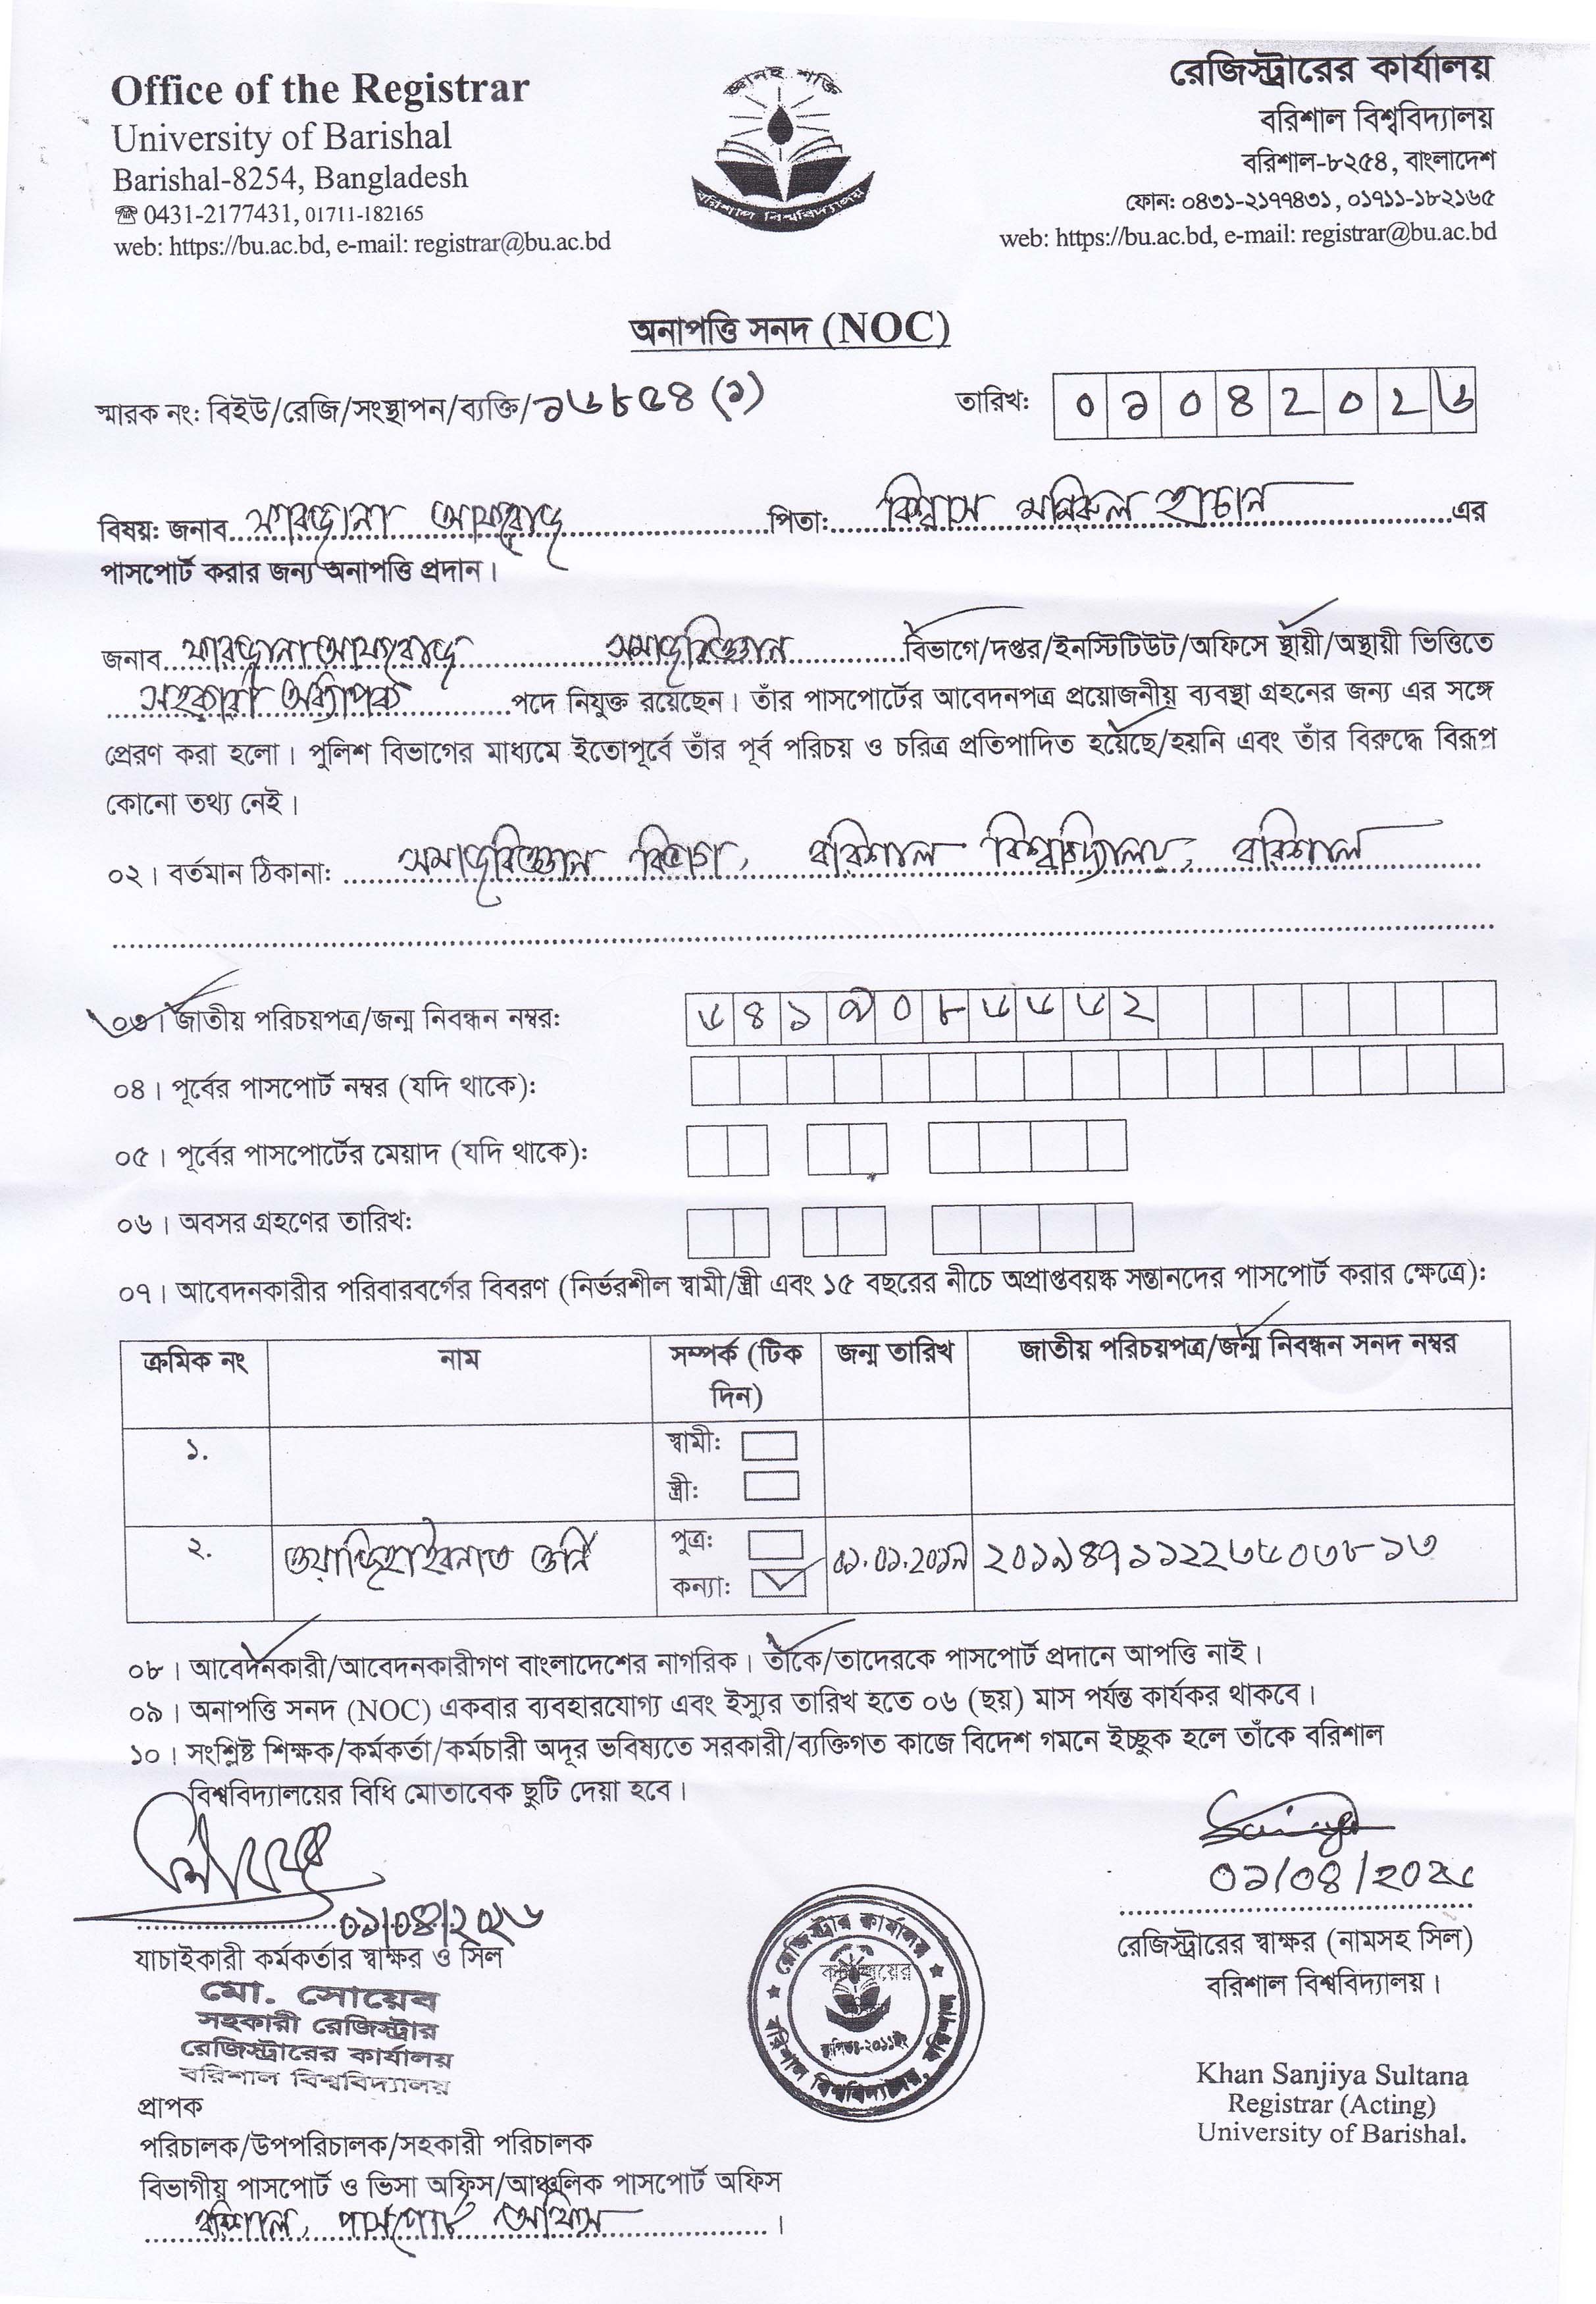 Office of the Registrar
University of Barishal
Barishal-8254, Bangladesh
☎ 0431-2177431, 01711-182165
web: https://bu.ac.bd, e-mail: registrar@bu.ac.bd
জ্ঞানই শক্তি
বরিশাল বিশ্ববিদ্যালয়
রেজিস্ট্রারের কার্যালয়
বরিশাল বিশ্ববিদ্যালয়
বরিশাল-৮২৫৪, বাংলাদেশ
ফোন: ০৪৩১-২১৭৭৪৩১, ০১৭১১-১৮২১৬৫
web: https://bu.ac.bd, e-mail: registrar@bu.ac.bd
অনাপত্তি সনদ (NOC)
স্মারক নং: বিইউ/রেজি/সংস্থাপন/ব্যক্তি/১৬৮৫৪ (১) তারিখ: ০১০৪২০২৬
বিষয়: জনাব ফারজানা আফরোজ পিতা: বিশ্বাস মনিরুল হাচান এর
পাসপোর্ট করার জন্য অনাপত্তি প্রদান।
জনাব ফারজানা আফরোজ সমাজবিজ্ঞান বিভাগে/দপ্তর/ইনস্টিটিউট/অফিসে স্থায়ী/অস্থায়ী ভিত্তিতে
সহকারী অধ্যাপক পদে নিযুক্ত রয়েছেন। তাঁর পাসপোর্টের আবেদনপত্র প্রয়োজনীয় ব্যবস্থা গ্রহনের জন্য এর সঙ্গে
প্রেরণ করা হলো। পুলিশ বিভাগের মাধ্যমে ইতোপূর্বে তাঁর পূর্ব পরিচয় ও চরিত্র প্রতিপাদিত হয়েছে/হয়নি এবং তাঁর বিরুদ্ধে বিরূপ
কোনো তথ্য নেই।
০২। বর্তমান ঠিকানা: সমাজবিজ্ঞান বিভাগ, বরিশাল বিশ্ববিদ্যালয়, বরিশাল
০৩। জাতীয় পরিচয়পত্র/জন্ম নিবন্ধন নম্বর: ৬৪১৯০৮৬৬৬২
০৪। পূর্বের পাসপোর্ট নম্বর (যদি থাকে):
০৫। পূর্বের পাসপোর্টের মেয়াদ (যদি থাকে):
০৬। অবসর গ্রহণের তারিখ:
০৭। আবেদনকারীর পরিবারবর্গের বিবরণ (নির্ভরশীল স্বামী/স্ত্রী এবং ১৫ বছরের নীচে অপ্রাপ্তবয়স্ক সন্তানদের পাসপোর্ট করার ক্ষেত্রে):
ক্রমিক নং নাম সম্পর্ক (টিক দিন) জন্ম তারিখ জাতীয় পরিচয়পত্র/জন্ম নিবন্ধন সনদ নম্বর
১. স্বামী:
স্ত্রী:
২. পুত্র:
কন্যা: ০১.০১.২০১৯ ২০১৯৪৭১১২২৬৫০৩৮১৩
০৮। আবেদনকারী/আবেদনকারীগণ বাংলাদেশের নাগরিক। তাঁকে/তাদেরকে পাসপোর্ট প্রদানে আপত্তি নাই।
০৯। অনাপত্তি সনদ (NOC) একবার ব্যবহারযোগ্য এবং ইস্যুর তারিখ হতে ০৬ (ছয়) মাস পর্যন্ত কার্যকর থাকবে।
১০। সংশ্লিষ্ট শিক্ষক/কর্মকর্তা/কর্মচারী অদূর ভবিষ্যতে সরকারী/ব্যক্তিগত কাজে বিদেশ গমনে ইচ্ছুক হলে তাঁকে বরিশাল
বিশ্ববিদ্যালয়ের বিধি মোতাবেক ছুটি দেয়া হবে।
০১/০৪/২০২৬
যাচাইকারী কর্মকর্তার স্বাক্ষর ও সিল
মো. সোয়েব
সহকারী রেজিস্ট্রার
রেজিস্ট্রারের কার্যালয়
বরিশাল বিশ্ববিদ্যালয়
রেজিস্ট্রার কার্যালয়
বরিশাল বিশ্ববিদ্যালয়, বরিশাল
স্থাপিতঃ-২০১১ইং
০১/০৪/২০২৬
রেজিস্ট্রারের স্বাক্ষর (নামসহ সিল)
বরিশাল বিশ্ববিদ্যালয়।
Khan Sanjiya Sultana
Registrar (Acting)
University of Barishal.
প্রাপক
পরিচালক/উপপরিচালক/সহকারী পরিচালক
বিভাগীয় পাসপোর্ট ও ভিসা অফিস/আঞ্চলিক পাসপোর্ট অফিস
বরিশাল, পাসপোর্ট অফিস।